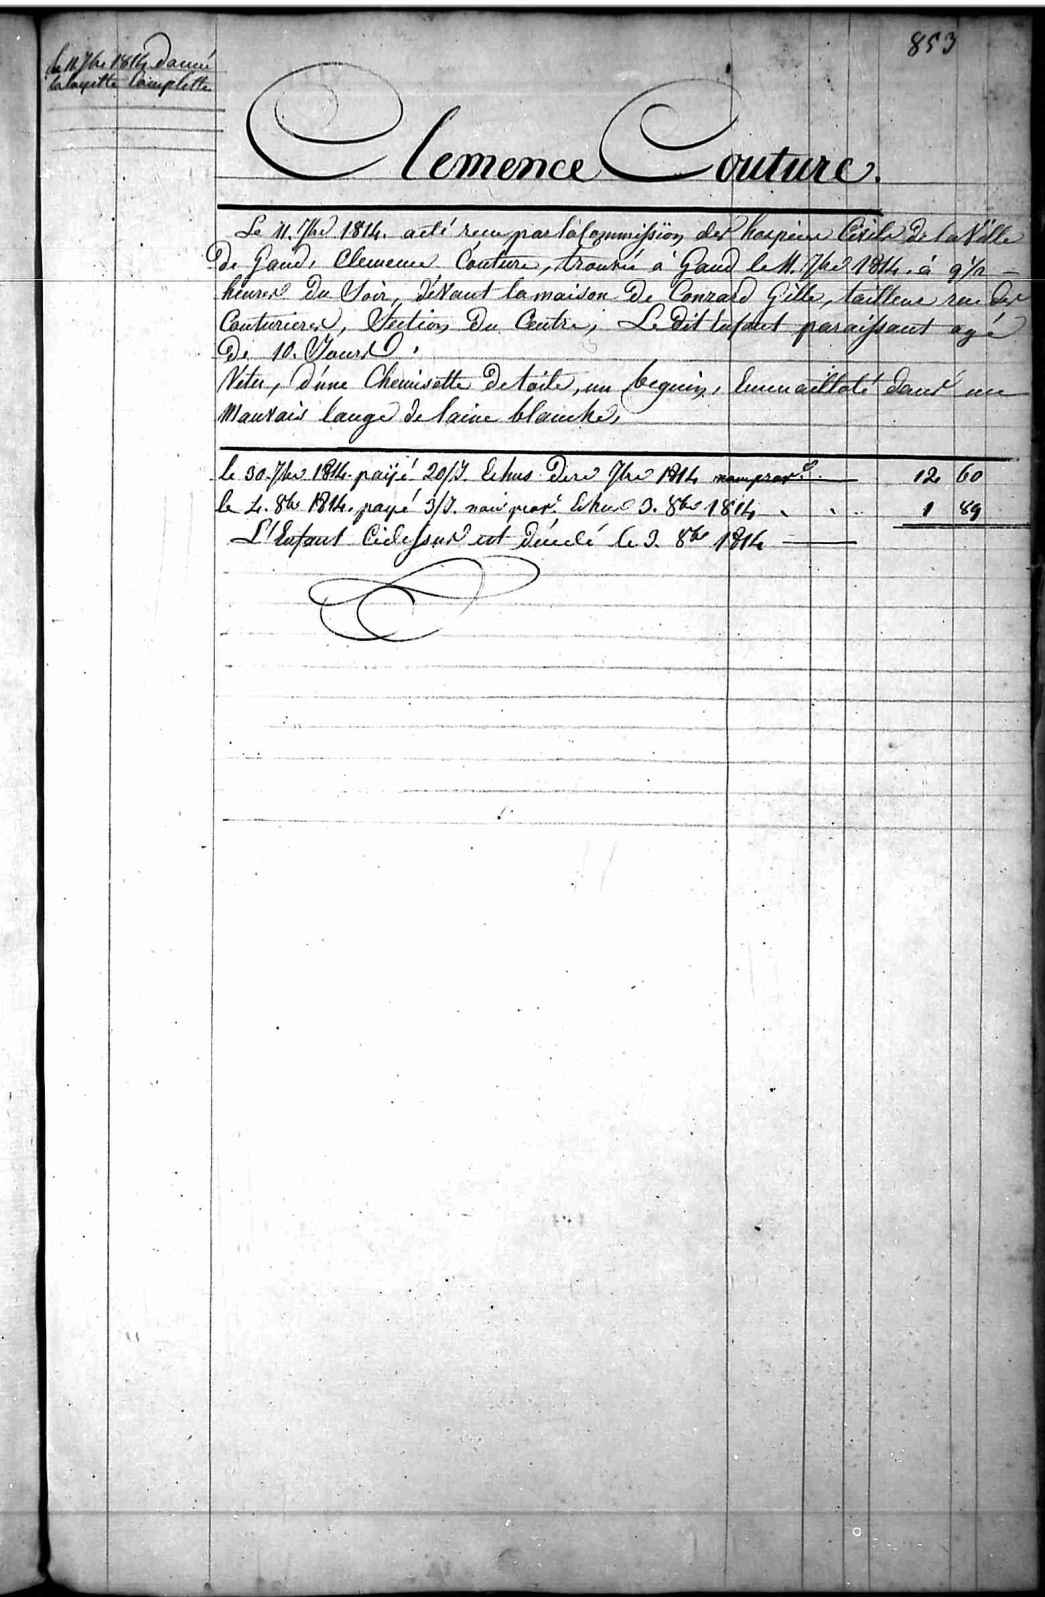 853
le 11. 7bre 1814 donné
la layette Complette
Clemence Couture.
Le 11. 7bre 1814. a été recu par la Commission des hospices Civils de la Ville
de Gand, Clemence Couture, trouvée à Gand le 11. 7bre 1814. à 9 1/2 –
heures du Soir, dévant la maison de Conrard Gille, tailleur rue des
Couturieres, Section du Centre, Le dit Enfant paraissant agé
de 10. Jours.
Vetu, d'une Chemisette de toile, un beguin, Emmailloté dans un
Mauvais lange de laine blanche,
le 30. 7bre 1814. payé 20/J. Echus dere 7bre 1814 12 60
le 4. 8bre 1814. payé 3/J. Echus 3. 8bre 1814 1 89
L'Enfant Cidessus est décédé le 3. 8bre 1814